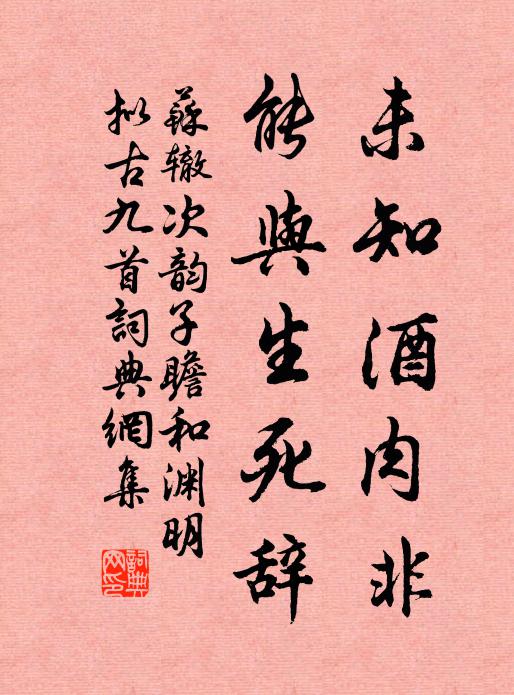 未知酒肉非
能與生死辞
蘇辙次韵子瞻和渊明
拟古九首詞典網集
詞典网印